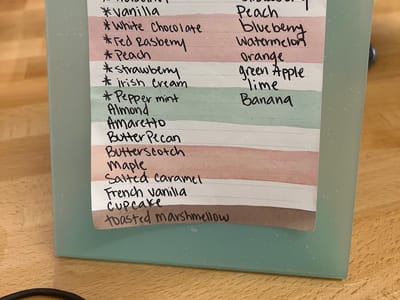 * vanilla
* White Chocolate
* Red Rasberry
* Peach
* strawberry
* irish cream
* Pepper mint
Almond
Amaretto
Butter Pecan
Butterscotch
Maple
Salted Caramel
French vanilla
cupcake
toasted marshmellow
Peach
blueberry
watermelon
orange
green Apple
lime
Banana